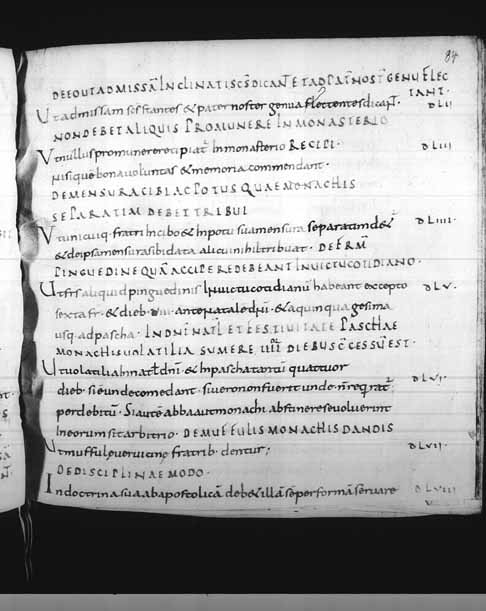 84
DE EO UT AD MISSĀ INCLINATIS SC̄S DICANT̄ ET AD PAT̄ NOST̄ GENU FLEC
TANT.
Ut ad missam sc̄s stantes & pater noster genua flectentes dicant̄. DLII
NON DEBET ALIQUIS PRO MUNERE IN MONASTERIO
Ut nullus pro munere recipiat̄ In monasterio RECIPI. DLIII
nisi que bona uoluntas & memoria commendant.
DE MENSURA CIBI AC POTUS QUAE MONACHIS
SEPARATIM DEBET TRIBUI
Ut unicuiq. fratri In cibo & In potu sua mensura separatim det̄ DLIIII.
& de ipsa mensura sibi data alicui nihil tribuat. DE FRM̄
PINGUEDINE QUĀ ACCIPERE DEBEANT IN UICTU COTIDIANO.
Ut frs̄ aliquid pinguedinis In uictu cotidianū habeant excepto DLV.
sexta fr̄. & dieb. VIII. ante natale dn̄i. & a quinquagesima
usq. ad pascha. IN DN̄I NAT̄L ET FESTIUITATE PASCHAE
MONACHIS UOLATILIA SUMERE IIIIOR DIEBUS C̄CESSŪ EST.
Ut uolatilia In nat̄ dn̄i. & In pascha tantū quattuor
dieb. si ē unde comedant. si uero non fuerit unde n̄ reqrat̄ DLVI.
per debitū. Si autē abba aut monachi abstinere se uoluerint
In eorum sit arbitrio. DE MUFFULIS MONACHIS DANDIS
Ut muffule ueruicine fratrib. dentur; DLVII.
DE DISCIPLINAE MODO.
In doctrina sua abba apostolicā deb& illā sēper formā seruare DLVIII